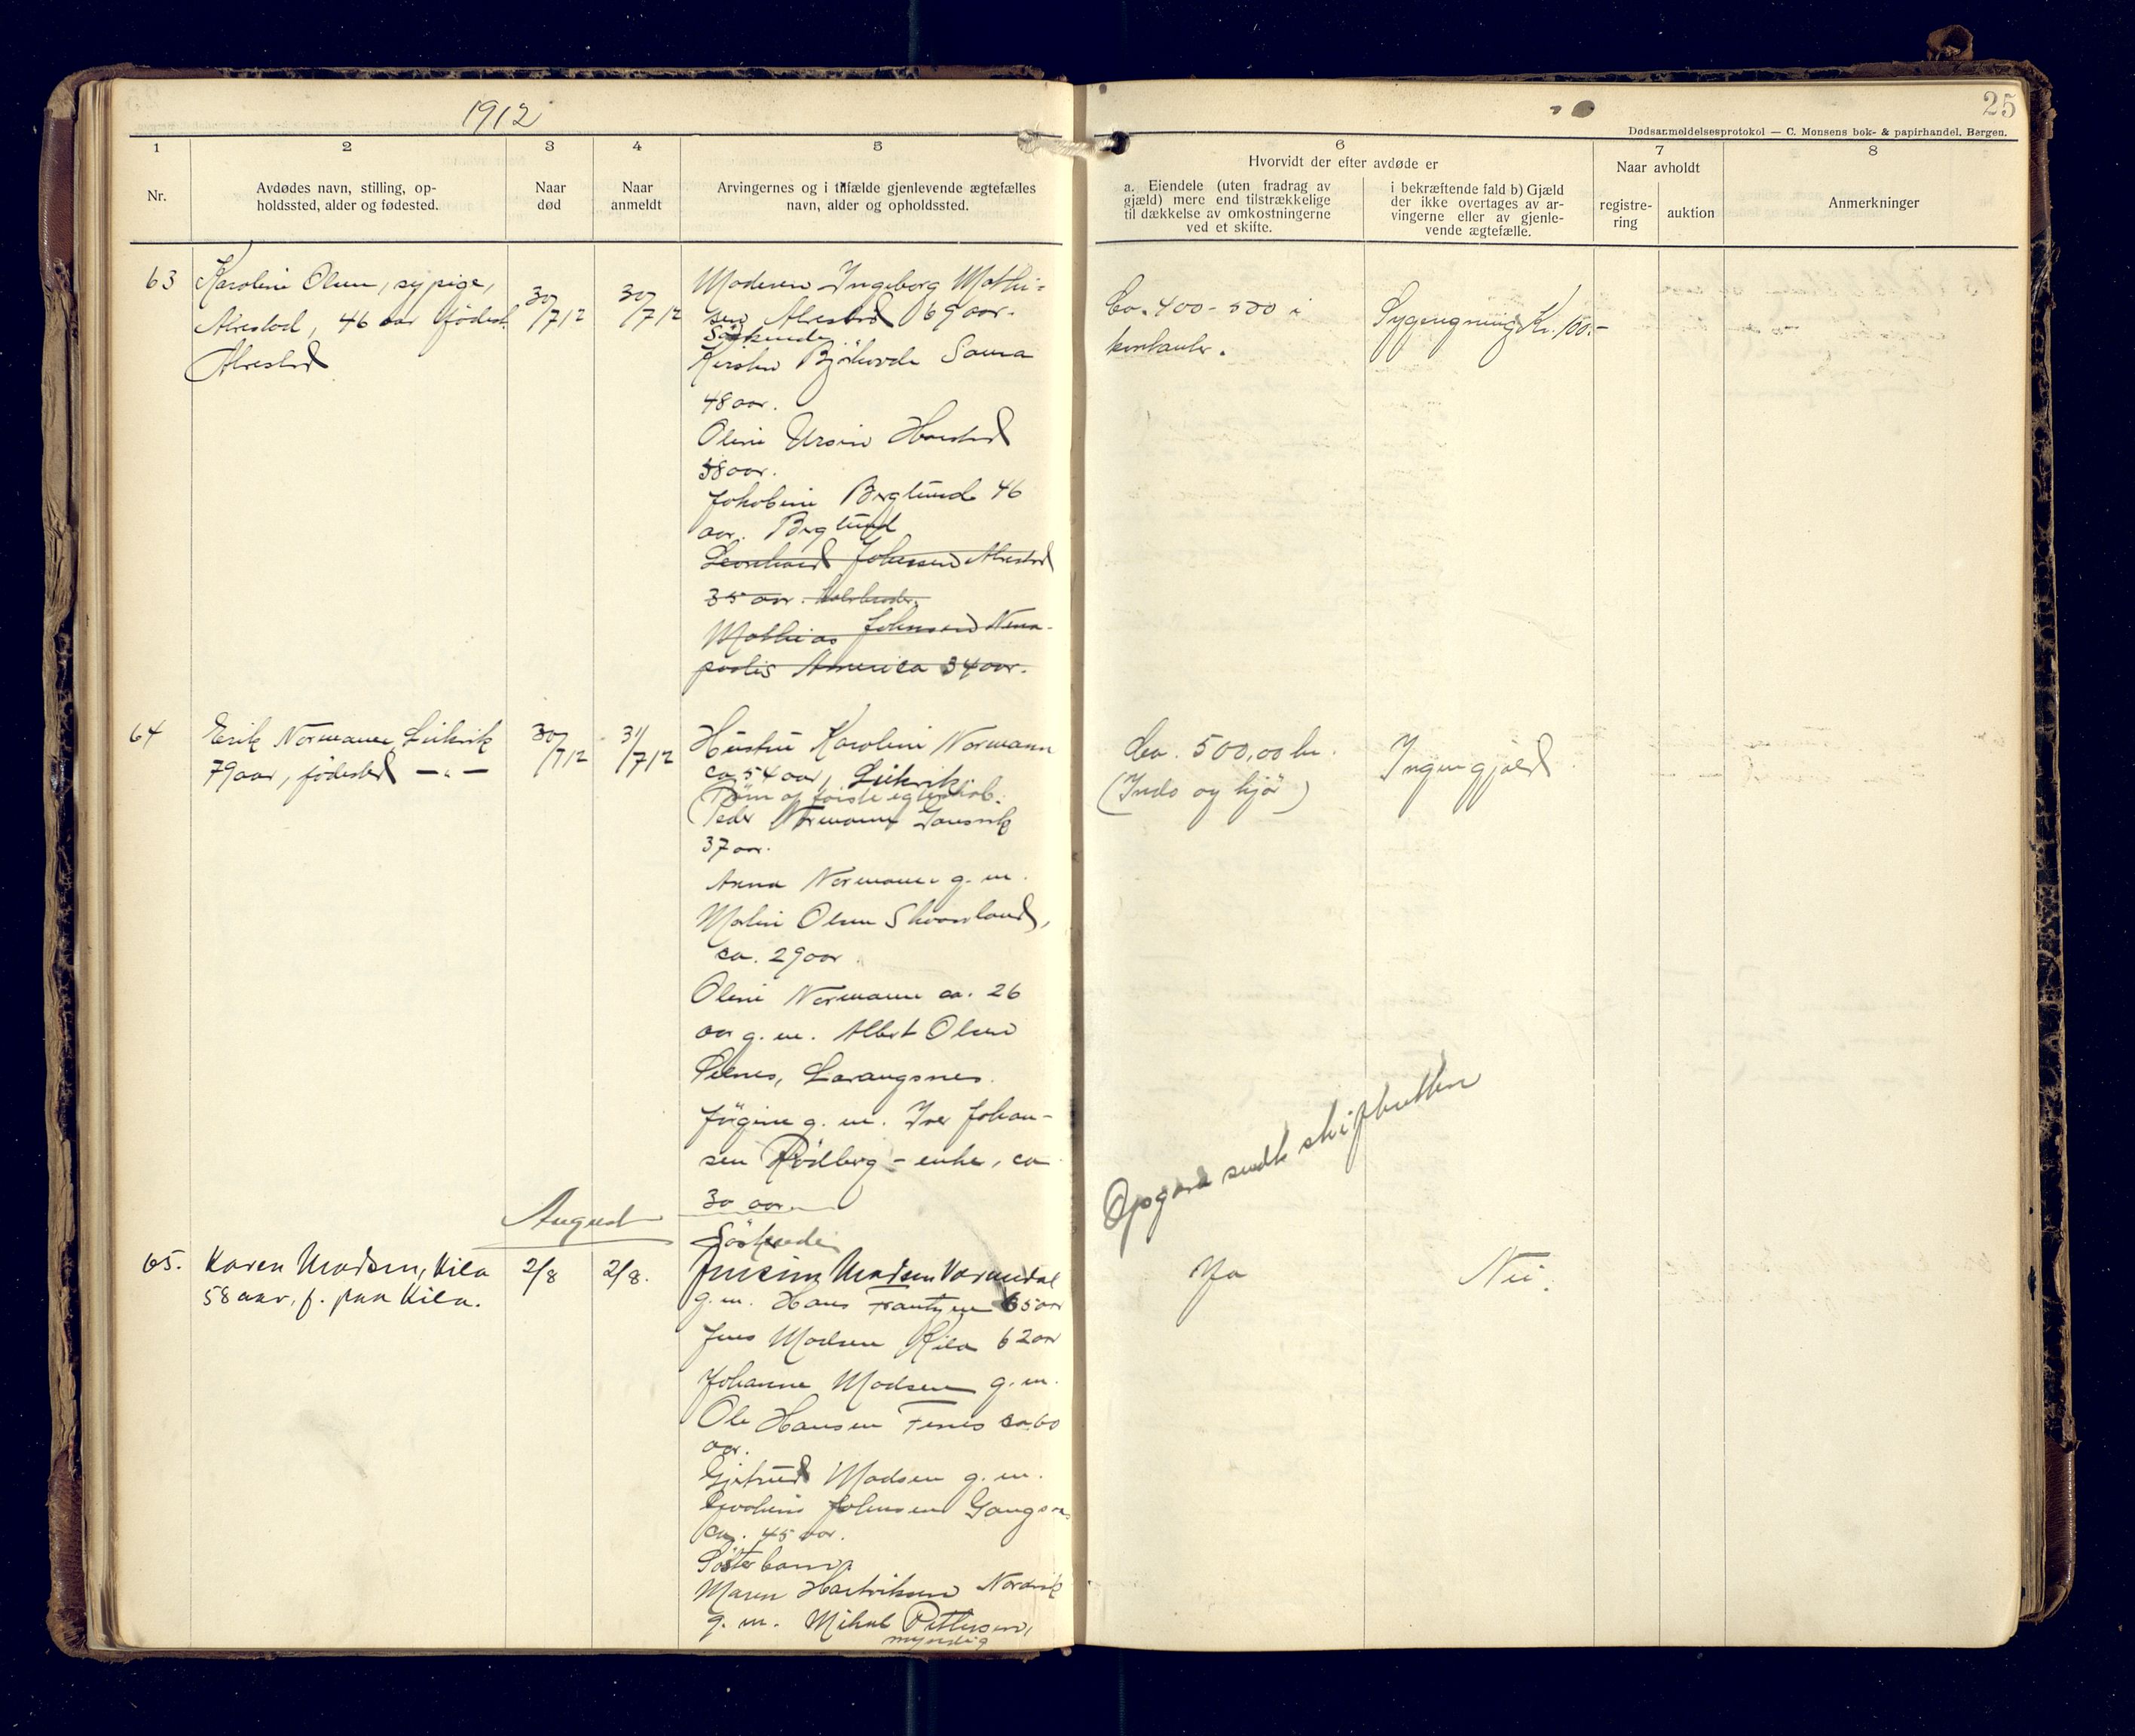 1912
25
Dødsanmeldelsesprotokol — C. Monsens bok- & papirhandel, Bergen.
1
2
3
4
5
6
7
8
Nr.
Avdødes navn, stilling, op-
holdssted, alder og fødested.
Naar
død
Naar
anmeldt
Arvingernes og i tilfælde gjenlevende ægtefælles
navn, alder og opholdssted.
Hvorvidt der efter avdøde er
a. Eiendele (uten fradrag av
gjæld) mere end tilstrækkelige
til dækkelse av omkostningerne
ved et skifte.
i bekræftende fald b) Gjæld
der ikke overtages av ar-
vingerne eller av gjenle-
vende ægtefælle.
Naar avholdt
registre-
ring
auktion
Anmerkninger
63
Karoline Olsen, sypige,
Alrestad, 46 aar fødest.
Alrestad
30/7 12
30/7 12
Moderen Ingeborg Mathi-
sen Alrestad 69 aar.
Søskende
Kirsten Sama
48 aar.
Oline Ursin Harstad
38 aar.
Jakobine Berglund 46
aar. Berglund
Leonhard Johnsen Alrestad
35 aar. halvbroder.
Mathias Johnsen
America 34 aar.
Ca. 400 - 500 i
kontanter.
Kr. 100.-
64
Erik Normann
79 aar, fødested — " —
30/7 12
31/7 12
Hustru Karoline Normann
ca 54 aar,
Børn af første egteskab.
Peder Normann
37 aar.
Anna Normann g. m.
Martin Olsen Skvanland,
ca. 29 aar.
Oline Normann ca. 26
aar g. m. Albert Olsen
Lavangsnes.
Jørgine g. m. Iver Johan-
sen Rødberg - enke, ca
30 aar
Ca. 500,00 kr.
(Indo og kjør)
Ingen gjæld.
Opgave sendt skifteretten
August
65.
Karen Madsen, Kila
58 aar, f. paa Kila.
2/8
2/8.
Søskende
Madsen Varmedal
g. m. Hans Frantzen 65 aar
Jens Madsen Kila 62 aar
Johanne Madsen g. m.
Ole Hansen Fenes ca 60
aar.
Gjertrud Madsen g. m.
Johnsen
ca. 45 aar.
Søsterbarn
Maren Hartviksen Nordvik
g. m. Mikal Pettersen,
myndig
Ja
Nei.